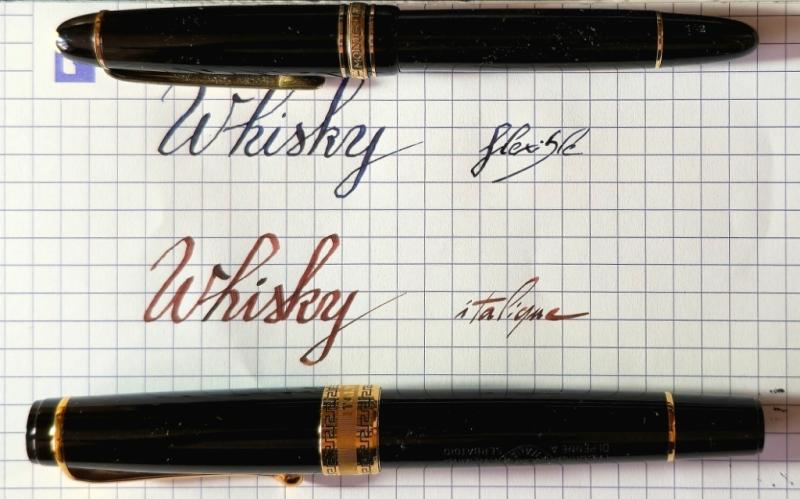 Whisky flexible
Whisky italique